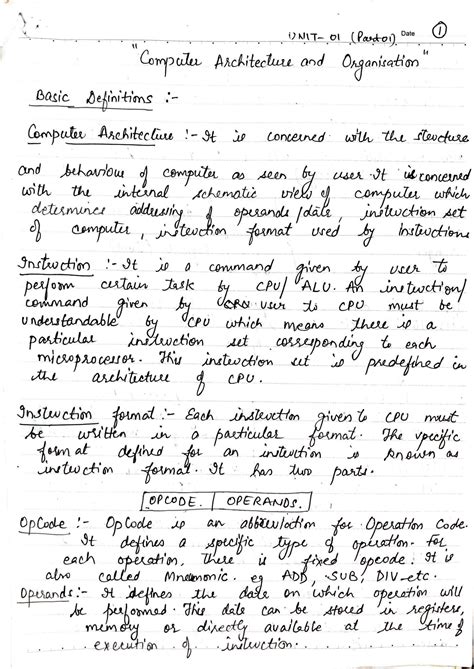 UNIT-01 (Part01) Date 1
"Computer Architecture and Organisation"
Basic Definitions :-
Computer Architecture :- It is concerned with the structure
and behaviour of computer as seen by user. It is concerned
with the internal schematic view of computer which
determines addressing of operands/data, instruction set
of computer, instruction format used by instructions
Instruction :- It is a command given by user to
perform certain task by CPU/ALU. An instruction/
command given by user to CPU must be
understandable by CPU which means there is a
particular instruction set corresponding to each
microprocessor. This instruction set is predefined in
the architecture of CPU.
Instruction format :- Each instruction given to CPU must
be written in a particular format. The specific
format defined for an instruction is known as
instruction format. It has two parts.
OPCODE. OPERANDS.
OpCode :- OpCode is an abbreviation for Operation Code.
It defines a specific type of operation. For
each operation, there is fixed opcode. It is
also called Mnemonic. eg ADD, SUB, DIV-etc.
Operands :- It defines the data on which operation will
be performed. This data can be stored in registers,
memory or directly available at the time of
execution of instruction.